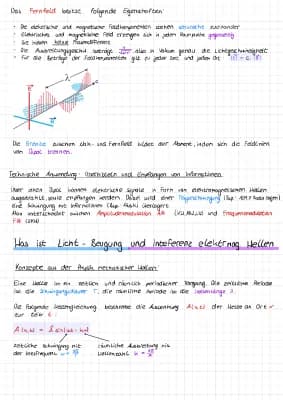 Das Fernfeld besitzt folgende Eigenschaften:
- Die elektrische und magnetische Feldkomponenten stehen senkrecht zueinander
- Elektrisches und magnetisches Feld erzeugen sich in jedem Raumpunkt gegenseitig
- Sie haben keine Phasendifferenz
- Die Ausbreitungsgeschwindigkeit beträgt also in Vakuum genau die Lichtgeschwindigkeit
- Für die Beträge der Feldkomponenten gilt zu jeder Zeit und jedem Ort
λ
E
B
Die Grenze zwischen Nah- und Fernfeld bildet der Abstand, indem sich die Feldlinien
vom Dipol trennen.
Technische Anwendung: Übermitteln und Empfangen von Informationen
Über einen Dipol können elektrische Signale in Form von elektromagnetischen Wellen
ausgestrahlt, sowie empfangen werden. Dabei wird einer Trägerschwingung
eine Schwingung mit Informationen überlagert.
Man unterscheidet zwischen Amplitudenmodulation AM und Frequenzmodulation
FM
Was ist Licht - Beugung und Interferenz elektromag Wellen
Konzepte aus der Physik mechanischer Wellen:
Eine Welle ist ein zeitlich und räumlich periodischer Vorgang. Die zeitliche Periode
ist die Schwingungsdauer T, die räumliche Periode ist die Wellenlänge λ.
Die folgende Wellengleichung beschreibt die Auslenkung A(x,t) der Welle am Ort x
zur Zeit t:
zeitliche Schwingung mit
der Kreisfrequenz
räumliche Ausbreitung mit
Wellenzahl